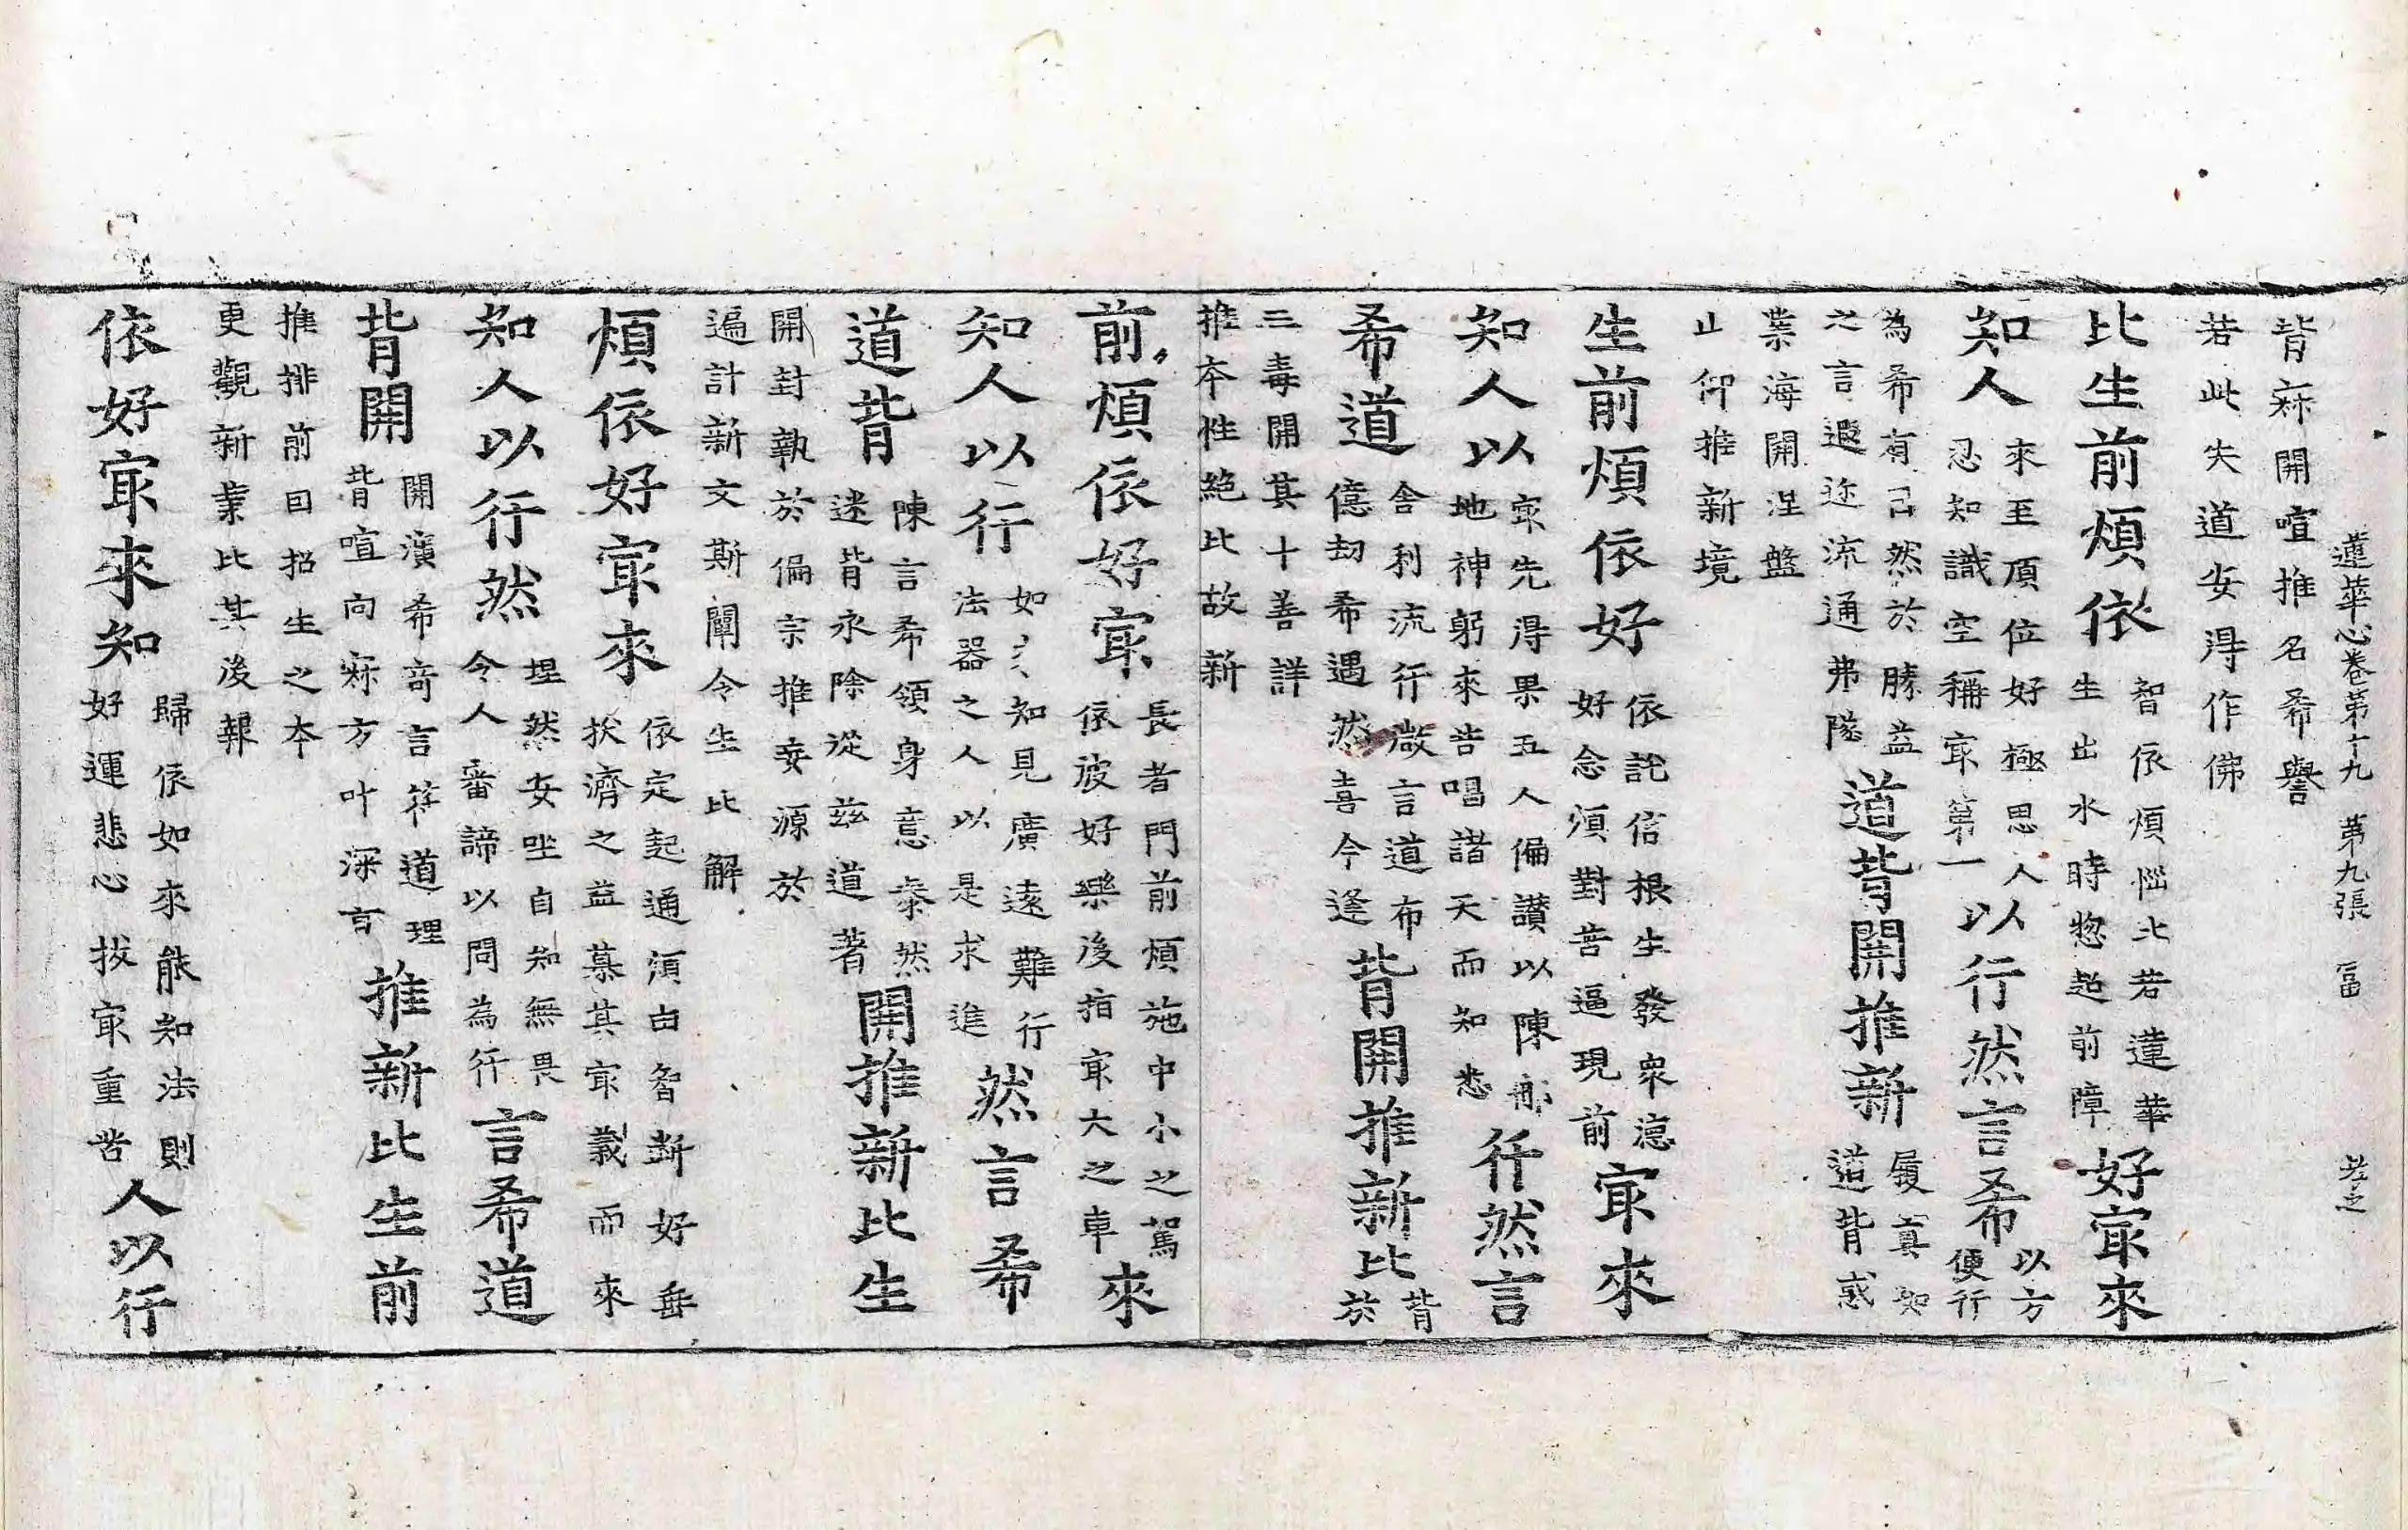 蓮華心卷第十九 第九張 冨
背寂開喧推名希譽
若此失道安得作佛
比生前煩依 智依煩惱比若蓮華 生出水時惣超前障 好㝡來
知人 來至頂位好極思人 忍知識空稱㝡第一 以行然言希 以方 便行
為希有己然於勝益
之言遐迩流通弗墜 道背開推新 履真知 道背惑
業海開涅盤
止仰推新境
生前煩依好 依託信根生發衆德 好念須對苦逼現前 㝡來
知人以 㝡先得果五人偏讃以陳 地神躬來告唱諸天而知悉 行然言
希道 舍利流行啟言道布 億劫希遇然喜今逢 背開推新比 背 於
三毒開其十善詳
推本性絕比故新
前煩依好㝡 長者門前煩施中小之駕 依彼好樂後指㝡大之車 來
知人以行 如〻知見廣遠難行 法器之人以是求進 然言希
道背 陳言希領身意泰然 迷背永除從茲道著 開推新比生
開封執於偏宗推妄源於
遍計新文斯闡令生比解
煩依好㝡來 依定起通須由智斷好垂 扶濟之益慕其㝡義而來
知人以行然 埋然安坐自知無畏 令人審諦以問為行 言希道
背開 開演希奇言符道理 背喧向寂方叶深言 推新比生前
推排前因招生之本
更觀新業比其後報
依好㝡來知 歸依如來能知法則 好運悲心拔㝡重苦 人以行